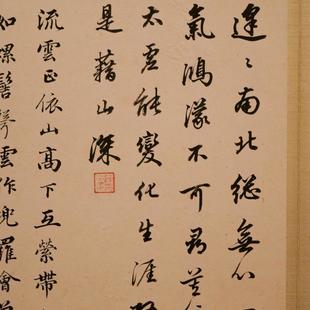 逢〻南北總無心一
氣鴻濛不可尋莫
太虛能變化生涯
是藉山深
流雲正依山高下互縈帶
如螺髻雲作兜羅